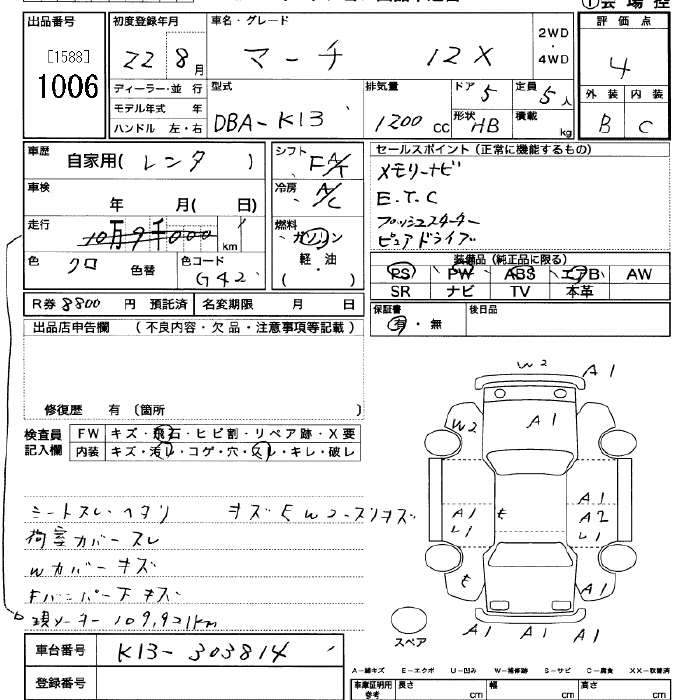 ①会場控
出品番号
[1588]
1006
初度登録年月
22 8月
車名・グレード
マーチ 12X
2WD
・
4WD
評価点
4
ディーラー・並行
モデル年式 年
ハンドル 左・右
型式
DBA-K13
排気量
1200 cc
ドア 5
形状 HB
定員 5人
積載 kg
外装 内装
B C
車歴
自家用( レンタ )
車検
年 月( 日)
走行
10万9千000 km
色 クロ 色替
色コード G42
シフト FAT
冷房 A/C
燃料
ガソリン
・
軽油
( )
セールスポイント(正常に機能するもの)
メモリーナビ
E.T.C
プッシュスターター
ピュアドライブ
装備品(純正品に限る)
PS PW ABS エアB AW
SR ナビ TV 本革
保証書
有・無
後日品
R券 8800 円 預託済
名変期限 月 日
出品店申告欄 (不良内容・欠品・注意事項等記載)
修復歴 有 (箇所 )
検査員
記入欄
FW キズ・飛石・ヒビ割・リペア跡・X要
内装 キズ・汚レ・コゲ・穴・スレ・キレ・破レ
シートスレ・ヘタリ キズEW2-スリキズ
荷室カバースレ
Wカバーキズ
Fバンパー下キズ
現メーター 109,921km
W2 A1
W2 A1
A1 E A1
L1 A2
L1
E A1
A1 A1 A1
スペア
車台番号 K13-303814
登録番号
A-線キズ E-エクボ U-凹み W-補修跡 S-サビ C-腐食 XX-取替済
車庫証明用
参考
長さ cm
幅 cm
高さ cm